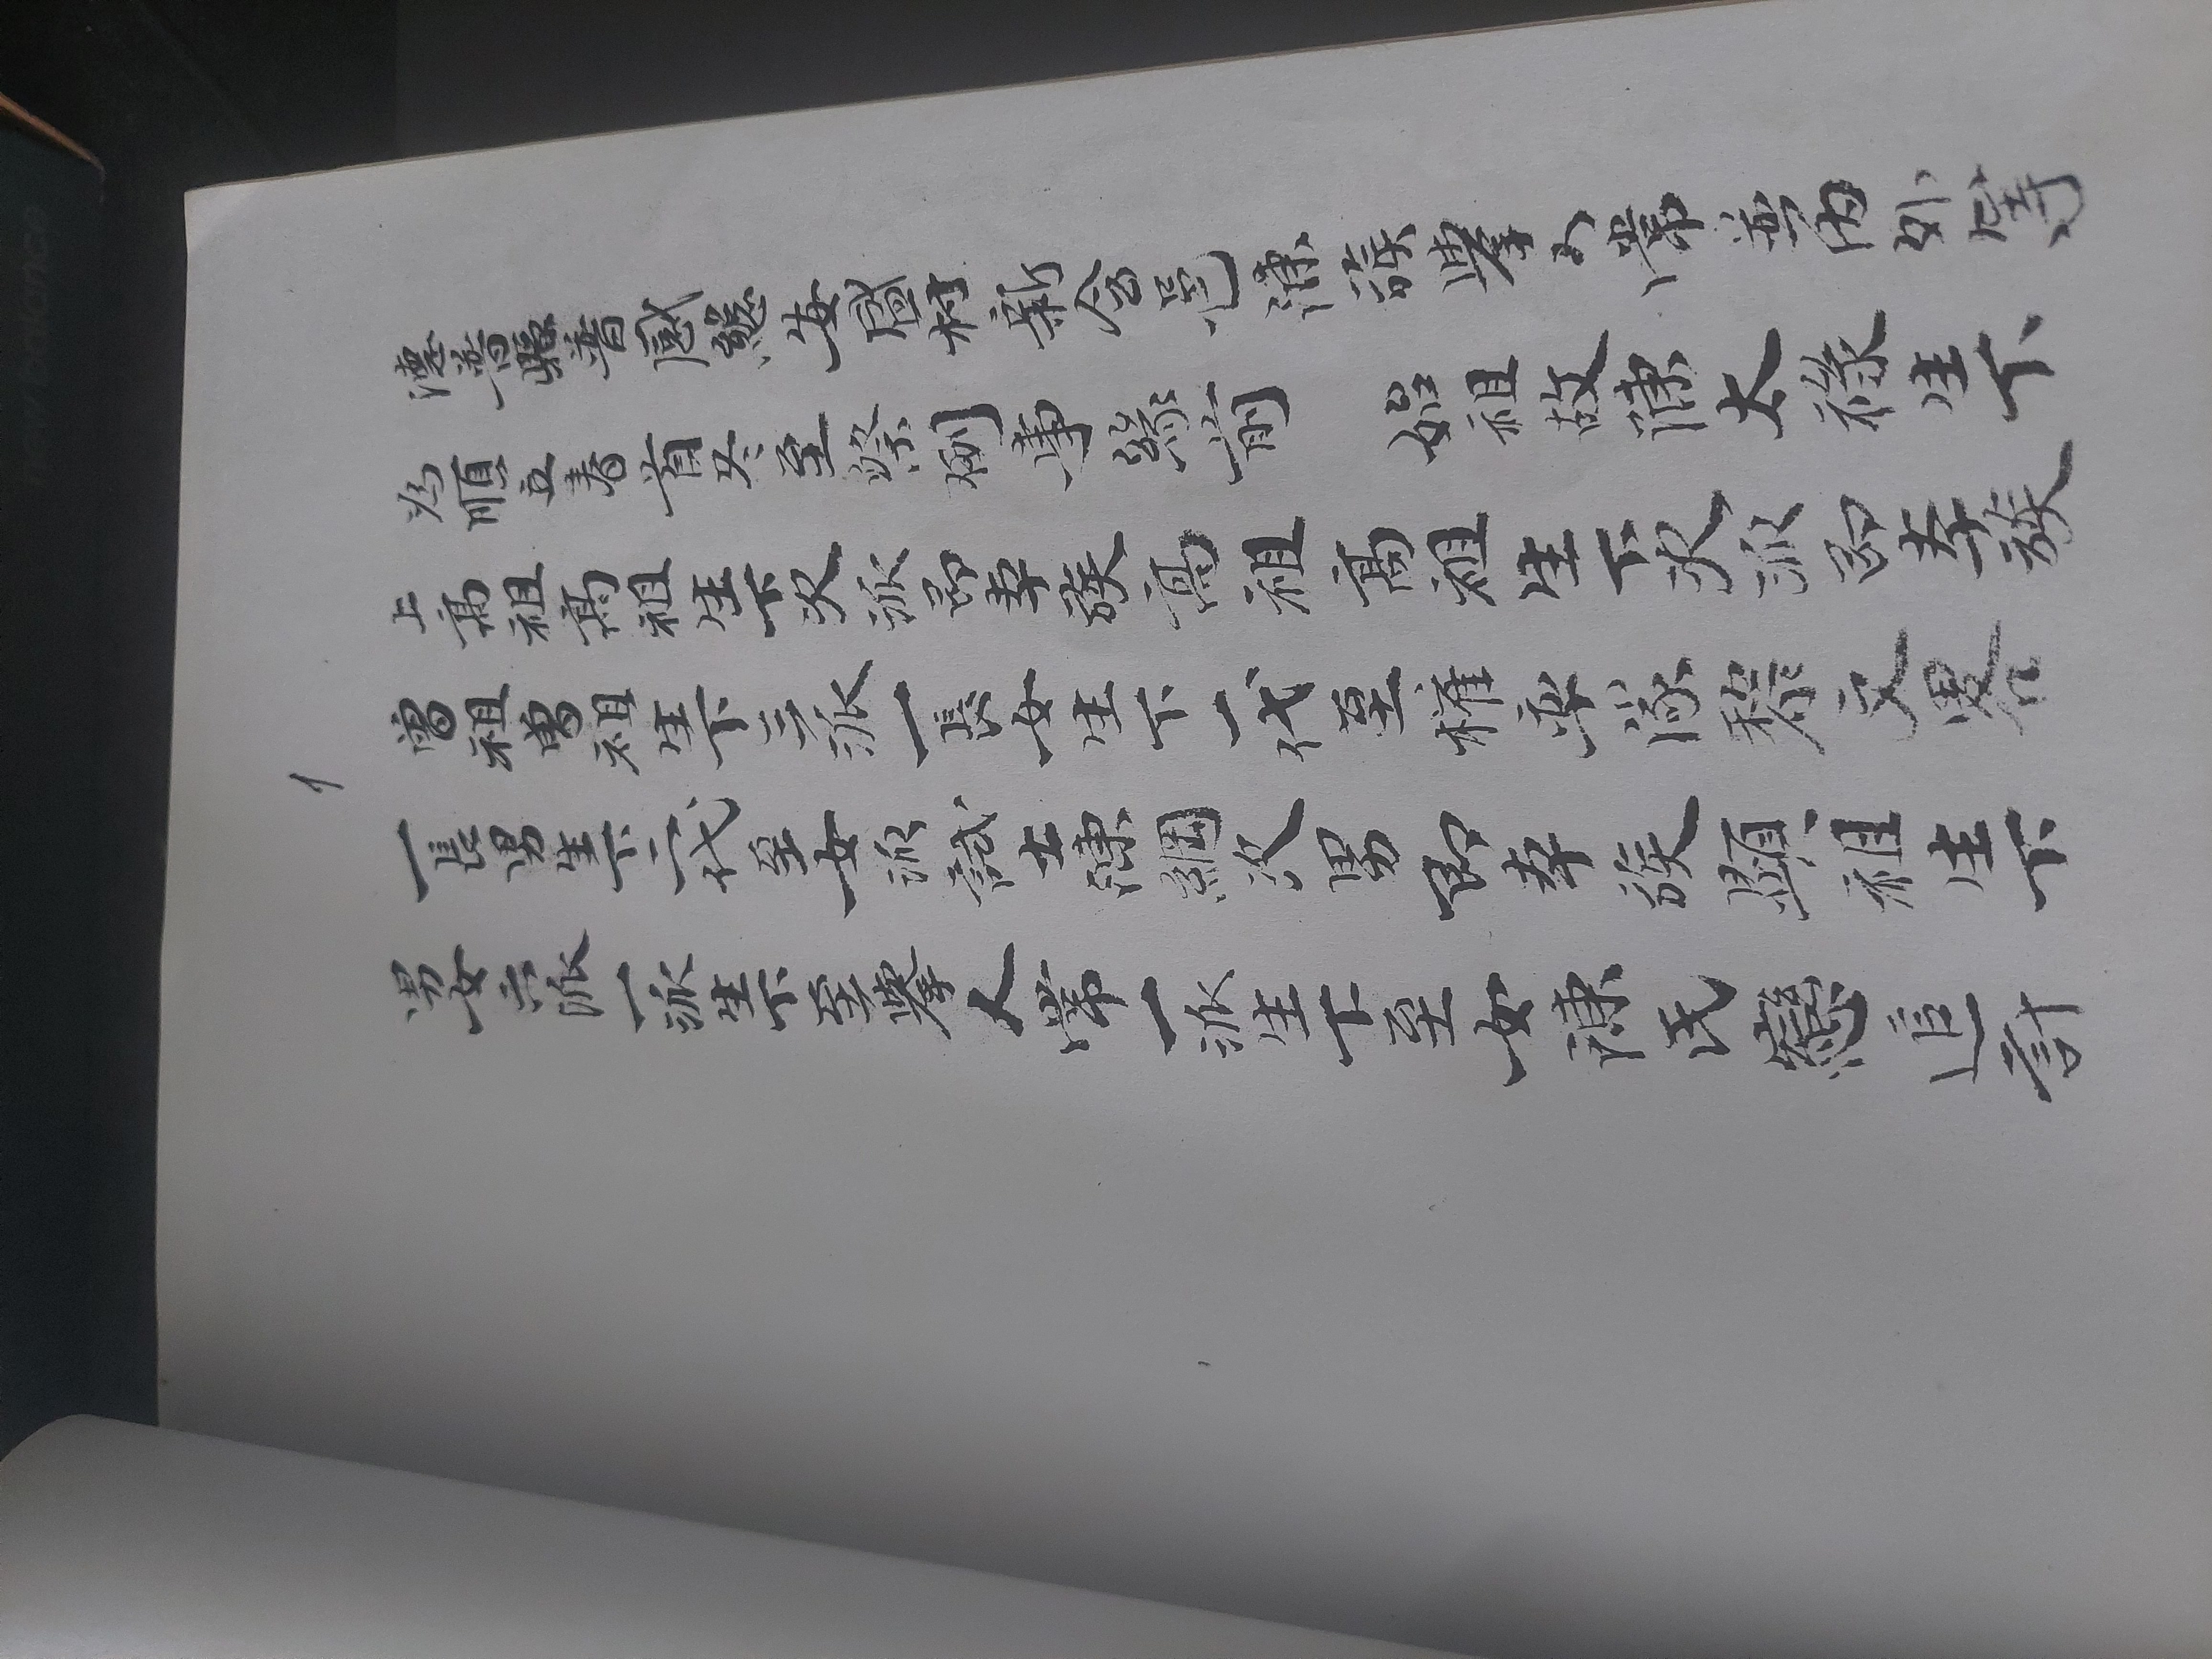 new balance
1
德普縣普感總安盛村新會邑陳族舉人常並內外等
為順立春首冬至祭例事緣前 始祖故陳太祿生下
上高祖高祖生下次派即本族高祖高祖生下次派即本族
曾祖曾祖生下三派一長女生下一代至權率隊黎文畧
一長男生下二代至女派試士陳綱次男即本族顯祖生下
男女六派一派生下至舉人常一派生下至女陳氏戀追計